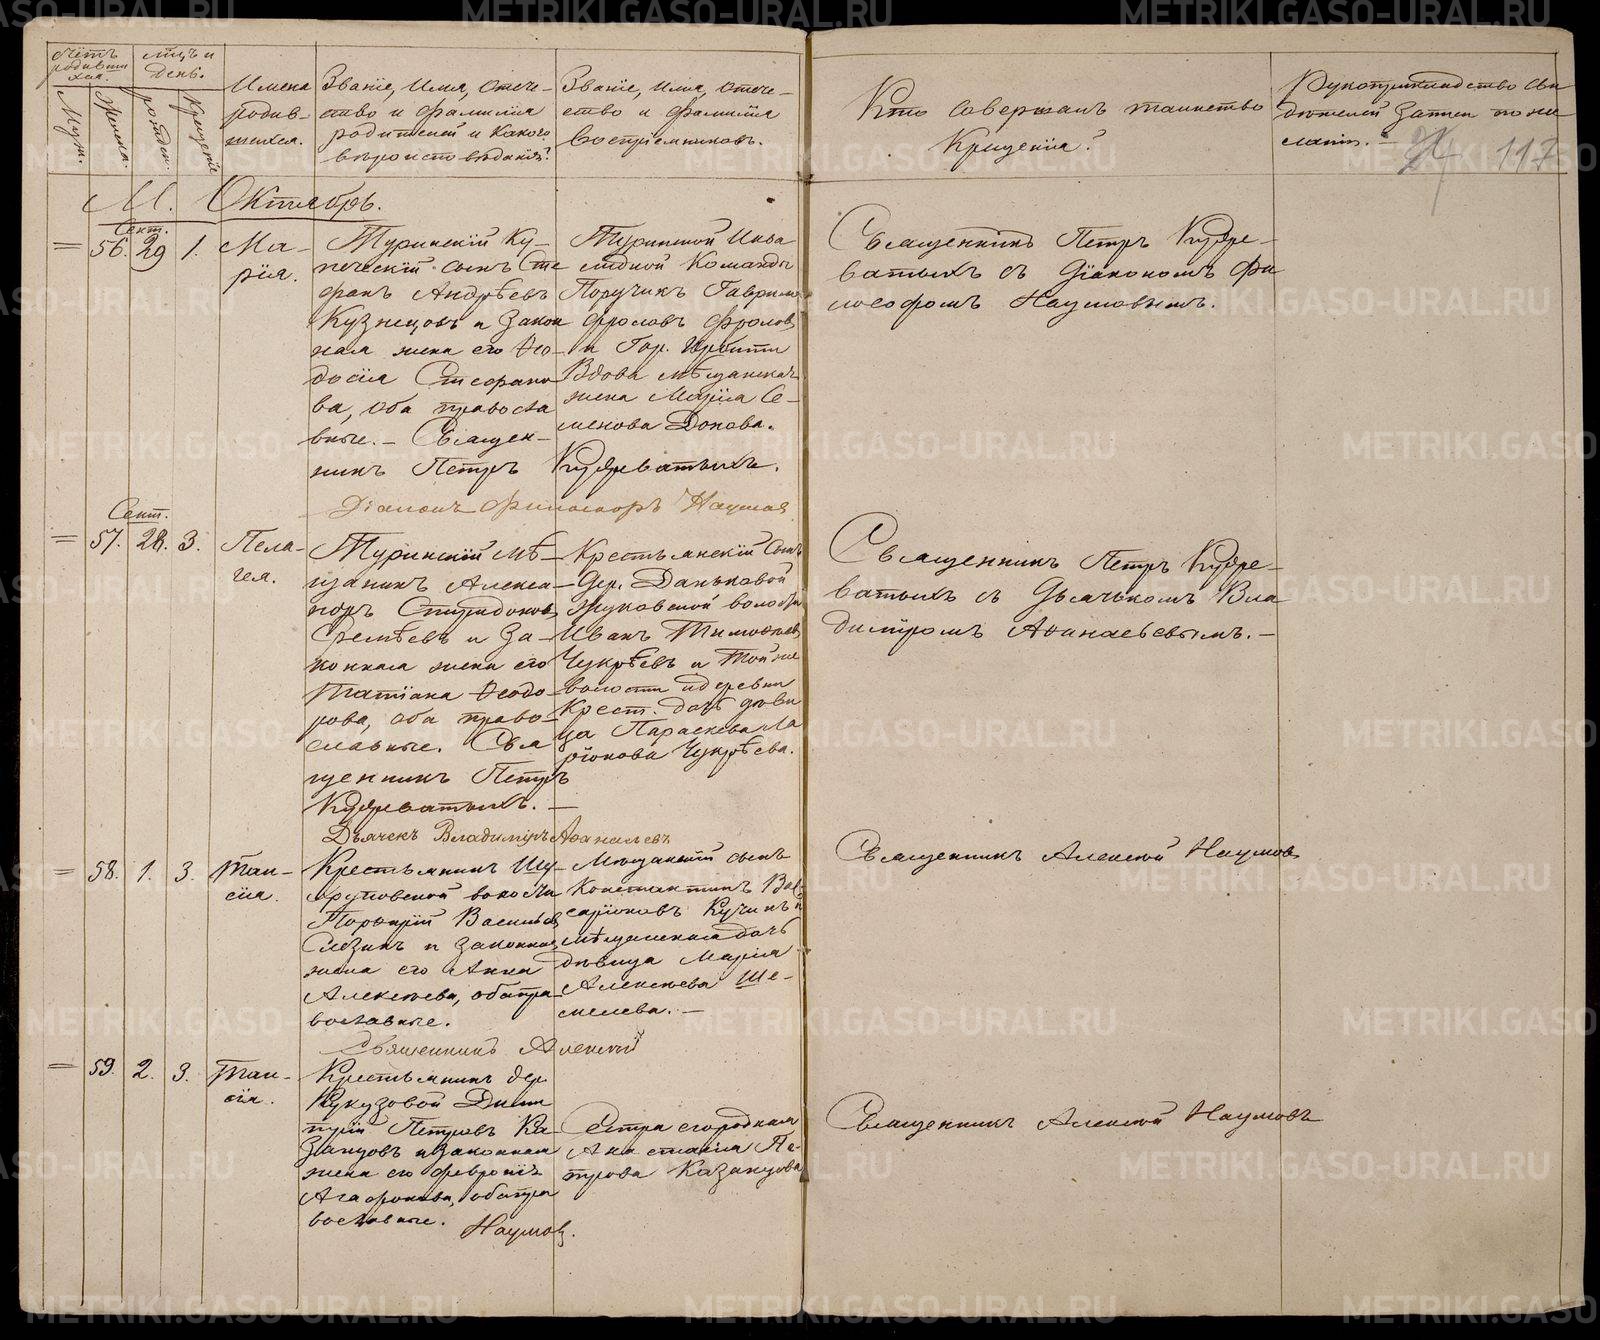 Счетъ родившихся.
Муж.
Женска.
Мѣсцъ и день.
рожден.
крещенія
Имена родив-
шихся.
Званіе, Имя, отече-
ство и фамилія
родителей и какого
вѣроисповѣданія?
Званіе, имя, отече-
ство и фамилія
Воспріемниковъ.
Кто совершалъ таинство
Крещенія?
Рукоприкладство сви
дѣтелей записи по же
ланію.
117
М. Октябрь.
Сент.
56. 29 1. Ма-
рія.
Туринскій Ку-
печескій сынъ Сте
фанъ Андрѣевъ
Кузнецовъ и закон
ная жена его Ѳео-
досія Стефано
ва, оба правосла
вные. – Священ-
никъ Петръ Кудреватыхъ.
Діаконъ Философъ Наумовъ
Туринской Инва
лидной Команды
Поручикъ Гаврило
Фроловъ Фроловъ
и Гор. Ирбити
Вдова мѣщанская
жена Марія Се-
менова Донова.
Священникъ Петръ Кудре-
ватыхъ съ Діакономъ Фи
лософомъ Наумовымъ.
Сент.
57. 28. 3. Пела-
гея.
Туринскій мѣ-
щанинъ Алекса-
ндръ Спиридонов
Еремѣевъ и за-
конная жена его
Татіана Ѳеодо-
рова, оба право-
славные. Свя
щенникъ Петръ
Кудреватыхъ. –
Дьячекъ Владиміръ Аѳанасьевъ
Крестьянскій сынъ
Дер. Даньковой
Жуковской волости
Иванъ Тимоѳеев
Чукрѣевъ и той же
волости и деревни
Крест. дочь дѣви
ца Параскева Ла
ріонова Чукрѣева.
Священникъ Петръ Кудре-
ватыхъ съ Дьячкомъ Вла
диміромъ Аѳанасьевымъ. –
58. 1. 3. Таи-
сія.
Крестьянинъ
волости
Порфирій Васильев
и законная
жена его Анна
Алексѣева, оба пра
вославные.
Священникъ Алексій
Мѣщанскій сынъ
Константинъ Вис
саріоновъ Кучинъ и
мѣщанская дочь
дѣвица Марія
Алексѣева Ше-
мелева. –
Священникъ Алексій Наумовъ
59. 2. 3. Таи-
сія.
Крестьянинъ дер
Кукузовой Дими
трій Петровъ Ка
занцовъ и законная
жена его Февронія
Агафонова, оба пра
вославные.
Наумовъ.
Сестра его родная
Анастасія Пе-
трова Казанцова
Священникъ Алексій Наумовъ